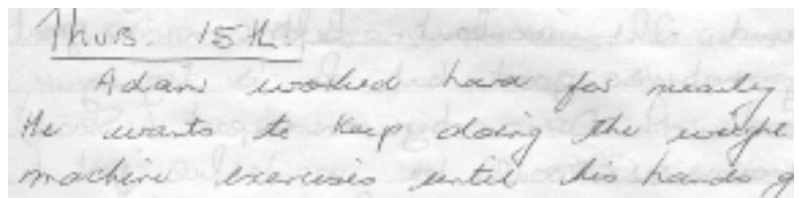 Thurs. 15th.
Adam worked hard for nearly
He wants to keep doing the weight
machine exercises until his hands g